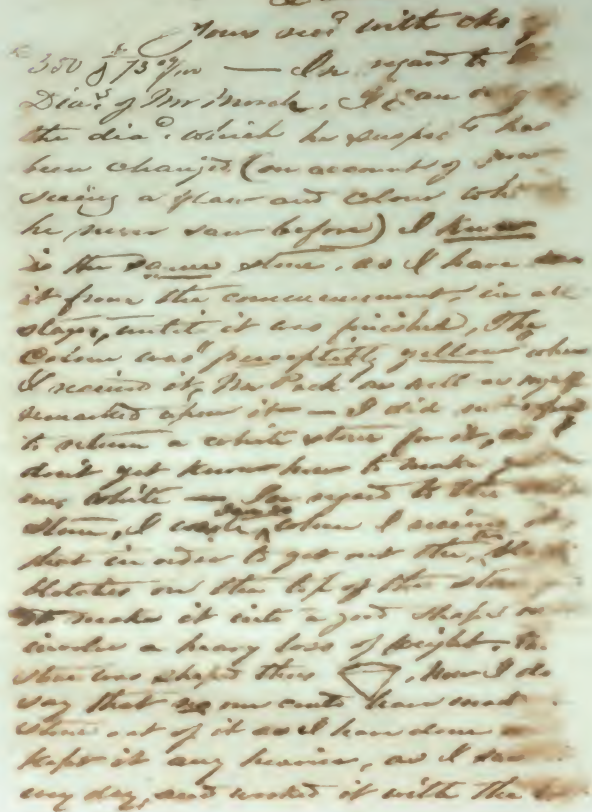 Yours recd with chs
350 $ 73 09/100 — In regard to
Dias. of Mr Morse. I can only
the dia. which he suspects has
been changed (on account of now
seeing a flaw and colour wh
he never saw before) I know
is the same stone, as I have seen
it from the commencement, in all
stages, until it was finished, The
Colour was perceptibly yellow when
I received it, Mr Pack as well as myself
remarked upon it — I did not expect
to return a white stone for it, as I
don't yet know how to make
one white — In regard to the
stone, I wrote when I received it
that in order to get out the
blotches on the top of the stone
to make it into a good shape
involve a heavy loss of weight. the
stone was shaped thus , Now I do
say that no one could have made
stone out of it as I have done
kept it any heavier, as I saw
every day, and worked it with the